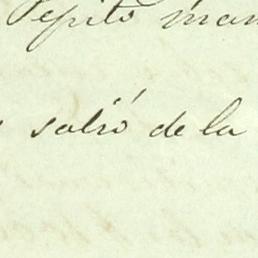 Pepito man
salió de la